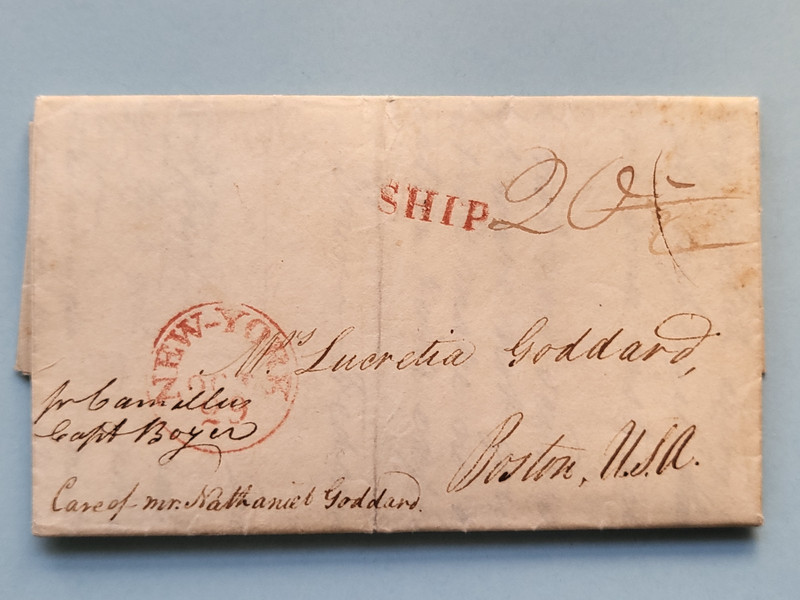 SHIP
NEW-YORK
Mrs Lucretia Goddard,
pr Camillus
Capt Boyer
Boston, U.S.A.
Care of mr. Nathaniel Goddard.